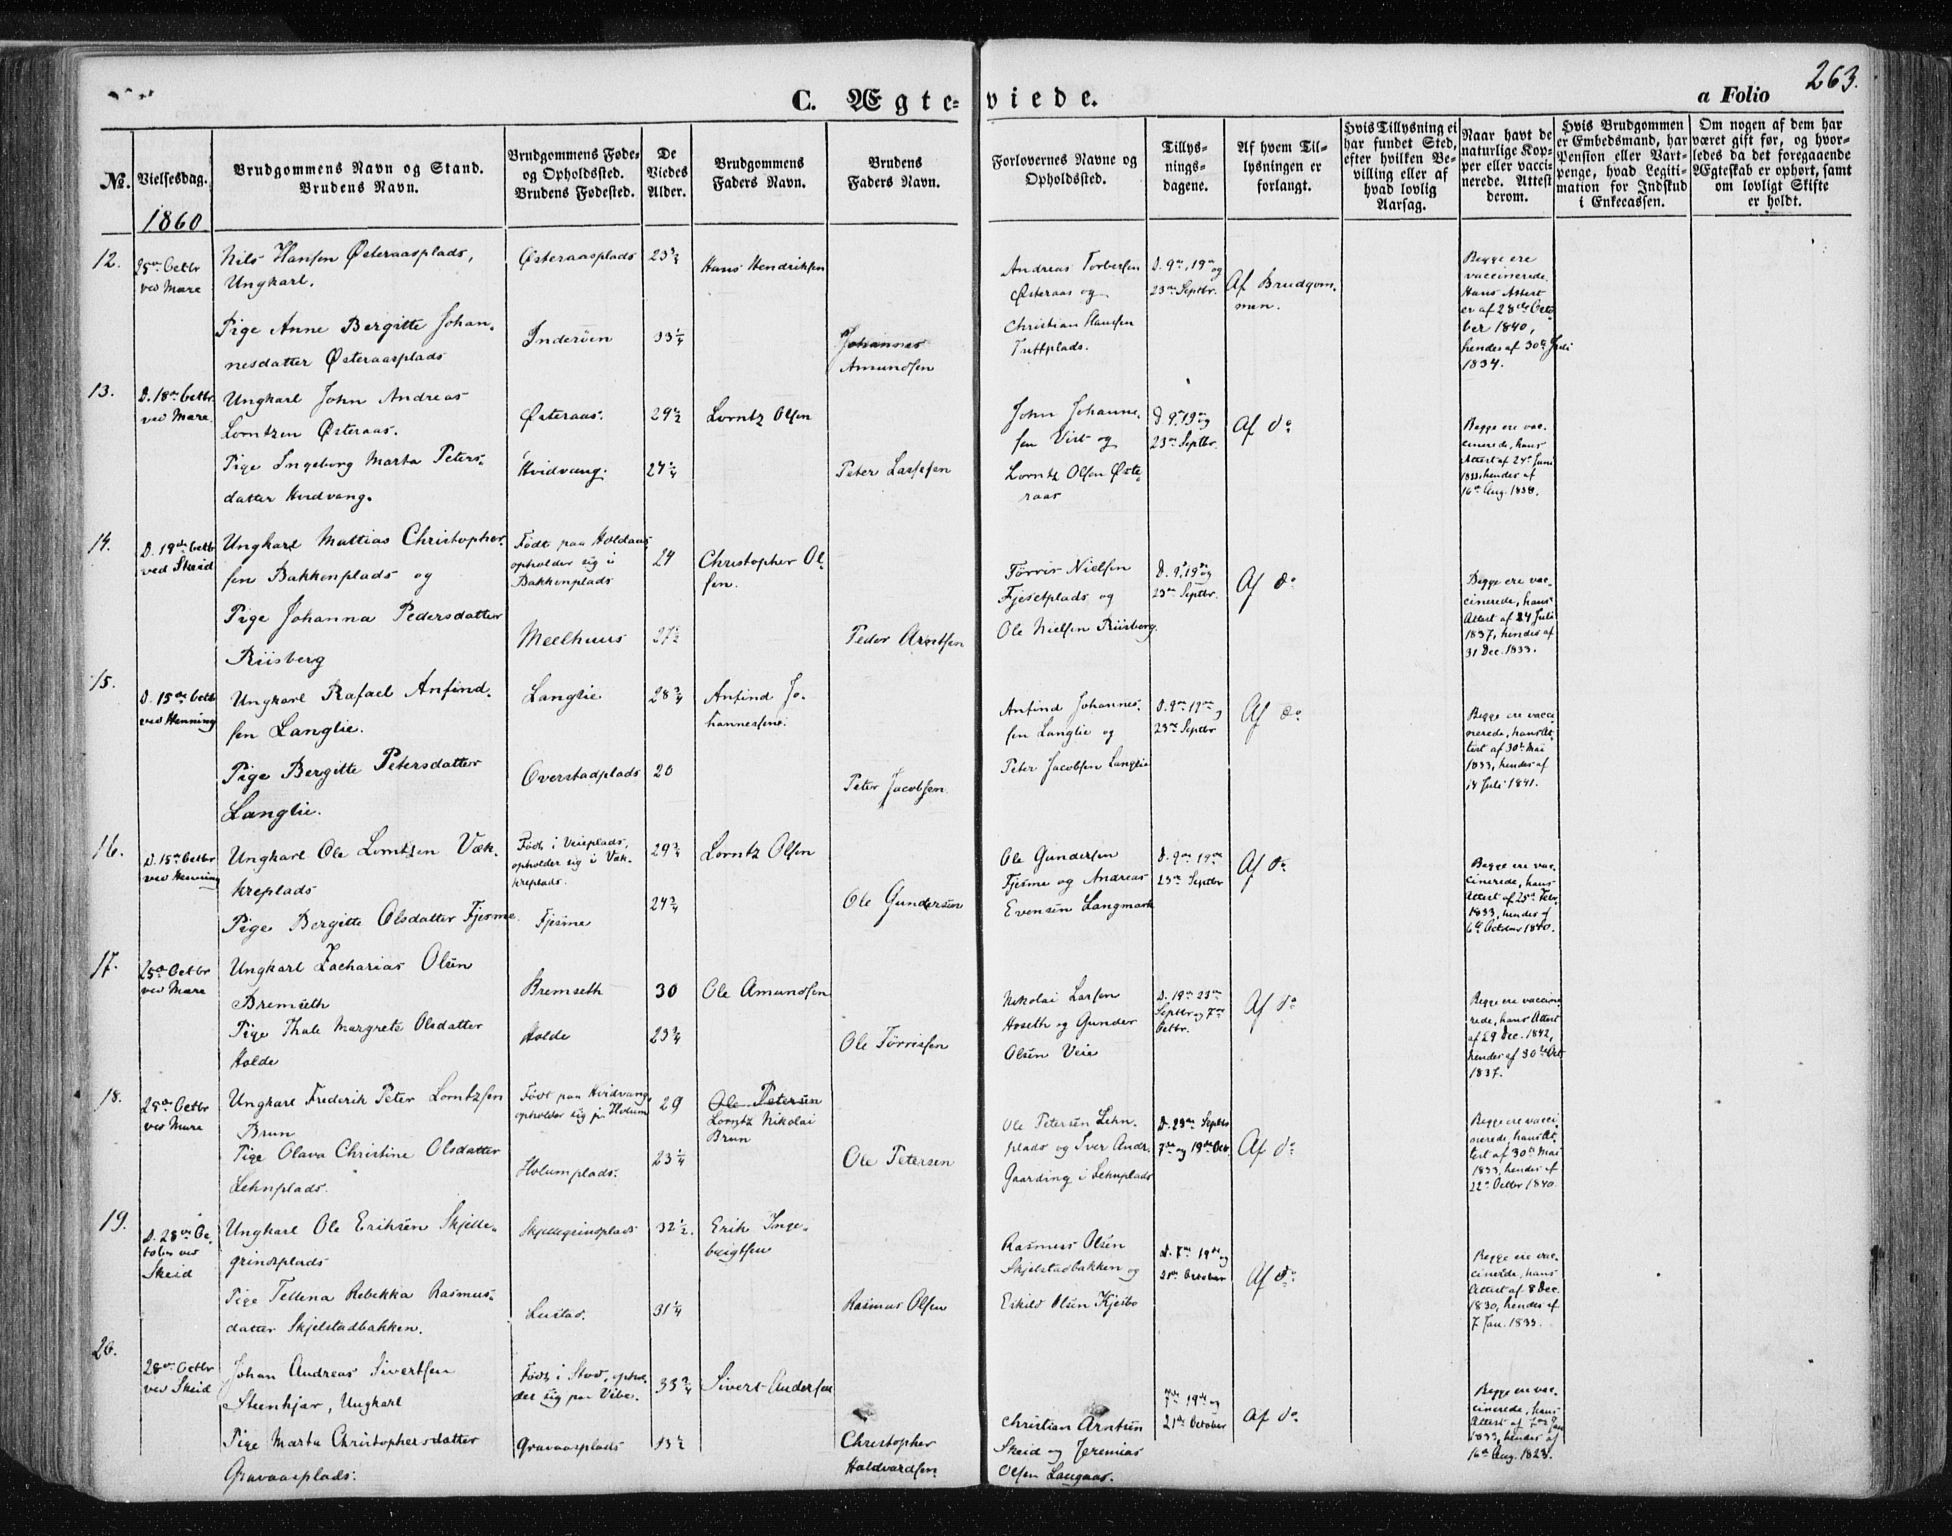 263.
C. Ægte-
viede.
a Folio
No.
Vielsesdag.
Brudgommens Navn og Stand.
Brudens Navn.
Brudgommens Føde-
og Opholdssted.
Brudens Fødested.
De
Viedes
Alder.
Brudgommens
Faders Navn.
Brudens
Faders Navn.
Forlovernes Navne og
Opholdssted.
Tillys-
nings-
dagene.
Af hvem Til-
lysningen er
forlangt.
Hvis Tillysning ei
har fundet Sted,
efter hvilken Be-
villing eller af
hvad lovlig
Aarsag.
Naar havt de
naturlige Kop-
per eller vacci-
nerede. Attest
derom.
Hvis Brudgommen
er Embedsmand, har
Pension eller Vart-
penge, hvad Legiti-
mation for Indskud
i Enkecassen.
Om nogen af dem har
været gift før, og hvor-
ledes da det foregaaende
Ægteskab er ophørt, samt
om lovligt Skifte
er holdt.
1860
12.
25de Octbr
ved Mære
Nils Hansen Østeraasplads,
Ungkarl.
Pige Anne Bergitte Johan-
nesdatter Østeraasplads
Østeraasplads
Inderøen
Hans Hendriksen
Johannes
Amundsen
Andreas Torbersen
Østeraas og
Christian Hansen
D. 9de, 19de og
23de Septbr.
Af Brudgom-
men.
Begge ere
vaccinerede.
Hans Attest
er af 28de Octo-
ber 1840,
hendes af 30te Juli
1834.
13.
D. 18de Octbr.
ved Mære
Ungkarl John Andreas
Lorntzen Østeraas.
Pige Ingeborg Marta Peters-
datter Hvidvang.
Østeraas.
Hvidvang.
29 1/2
Lorntz Olsen
Peter Larssen
John Johanne-
sen Vist og
Lorntz Olsen Øste-
raas
D. 9de, 19de og
23de Septbr.
Af do
Begge ere vac-
cinerede, hans
Attest af 24de Juni
1833, hendes af
16de Aug. 1838.
14.
D. 19de Octbr
ved Skeid
Ungkarl Mattias Christopher-
sen Bakkenplads og
Pige Johanna Pedersdatter
Riisberg
Født paa Holdaas,
opholder sig i
Bakkenplads
Meelhuus
24
27 1/2
Christopher Ol-
sen.
Peder Arntsen
Tørris Nielsen
Fjesetplads og
Ole Nielsen Riisberg.
D. 9de, 19de og
23de Septbr.
Af do
Begge ere vac-
cinerede, hans
Attest af 24 Juli
1837, hendes af
31 Dec. 1833.
15.
D. 15de Octb
ved Henning
Ungkarl Rafael Anfind-
sen Langlie.
Pige Bergitte Petersdatter
Langlie.
Langlie
Overstadplads
28 3/4
20
Anfind Jo-
hannessen.
Peter Jacobsen.
Anfind Johannes-
sen Langlie og
Peter Jacobsen Langlie
D. 9de, 19de og
23de Septbr
Af do
Begge ere vacci-
nerede, hans At-
test af 30te Mai
1833, hendes af
14 Juli 1841.
16.
D. 15de Octbr
ved Henning
Ungkarl Ole Lorntzen Væk-
kreplads
Pige Bergitte Olsdatter Fjesme.
Født i Veieplads,
opholder sig i Væk-
kreplads.
Fjesme
29 3/4
24 3/4
Lorntz Olsen
Ole Gundersen
Ole Gundersen
Fjesme og Andreas
Evensen Langmark
D. 9de, 19de
23de Septbr
Af do
Begge ere vac-
cinerede, hans
Attest af 25de Febr.
1833, hendes af
6te October 1840.
17.
25de Octbr
ved Mære
Ungkarl Zacharias Olsen
Bremseth
Pige Thale Margrete Olsdatter
Holde
Bremseth
Holde
30
23 3/4
Ole Amundsen
Ole Tørrissen
Nikolai Larsen
Hoseth og Gunder
Olsen Veie
D. 19de, 23de
Septbr og 7de
Octbr.
Af do
Begge ere vaccine-
rede, hans Attest
af 29 Dec. 1842,
hendes af 30te Oct
1837.
18.
25de Octbr
ved Mære
Ungkarl Frederik Peter Lorntzsen
Brun
Pige Olava Christine Olsdatter
Lehnplads.
Født paa Hvidvang,
opholder sig p. Holum
Holumplads.
29
23 1/4
Ole Petersen
Lorntz Nikolai
Brun
Ole Petersen
Ole Petersen Lehn-
plads og Iver Andr.
Gaarding i Lehnplads
D. 23de Septbr
7de og 19de Octr.
Af do
Begge ere vacci-
nerede, hans At-
test af 30te Mai
1833, hendes af
22de Octbr 1840.
19.
D. 28de Oc-
tober ved
Skeid
Ungkarl Ole Eriksen Skjelle-
grindsplads
Pige Tellena Rebekka Rasmus-
datter Skjelstadbakken.
Skjellegrindsplads
Lustad.
32 1/2.
31 1/4
Erik Inge-
brigtsen
Rasmus Olsen
Rasmus Olsen
Skjelstadbakken og
Eskild Olsen Kjesbo
D. 7de, 19de og
21de October
Af do
Begge ere vac-
cinerede, hans
Attest af 8 Dec.
1830, hendes af
7 Jan. 1833.
20.
28de Octbr
ved Skeid
Johan Andreas Sivertsen
Steenkjær, Ungkarl
Pige Marta Christophersdatter
Gravaasplads.
Født i Stod, ophol-
der sig paa Vibe.
Gravaasplads
33 3/4
Sivert Andersen
Christopher
Haldvardsen.
Christian Arntsen
Skeid og Jeremias
Olsen Langaas.
7de, 19de og
21de October
Af do
Begge ere vac-
cinerede, hans
Attest af 7de Jan
1833, hendes af
16de Aug. 1823.